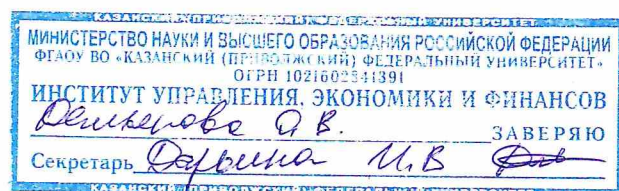 КАЗАНСКИЙ (ПРИВОЛЖСКИЙ) ФЕДЕРАЛЬНЫЙ УНИВЕРСИТЕТ
МИНИСТЕРСТВО НАУКИ И ВЫСШЕГО ОБРАЗОВАНИЯ РОССИЙСКОЙ ФЕДЕРАЦИИ
ФГАОУ ВО «КАЗАНСКИЙ (ПРИВОЛЖСКИЙ) ФЕДЕРАЛЬНЫЙ УНИВЕРСИТЕТ»
ОГРН 1021602841391
ИНСТИТУТ УПРАВЛЕНИЯ, ЭКОНОМИКИ И ФИНАНСОВ
ЗАВЕРЯЮ
Секретарь И.В
КАЗАНСКИЙ (ПРИВОЛЖСКИЙ) ФЕДЕРАЛЬНЫЙ УНИВЕРСИТЕТ